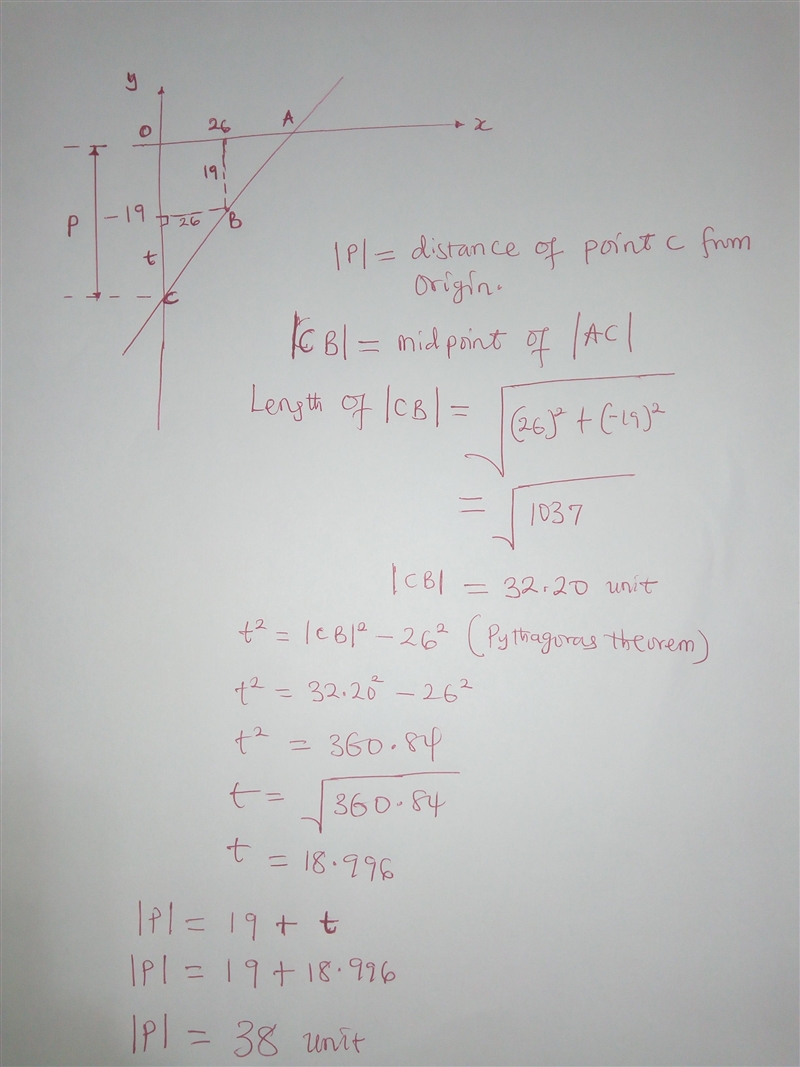 y
O 26 A x
19
P -19 26 B
t
C
|P| = distance of point C from
Origin.
|CB| = midpoint of |AC|
Length of |CB| = √(26)² + (-19)²
= √1037
|CB| = 32.20 unit
t² = |CB|² - 26² (Pythagoras theorem)
t² = 32.20² - 26²
t² = 360.84
t = √360.84
t = 18.996
|P| = 19 + t
|P| = 19 + 18.996
|P| = 38 unit